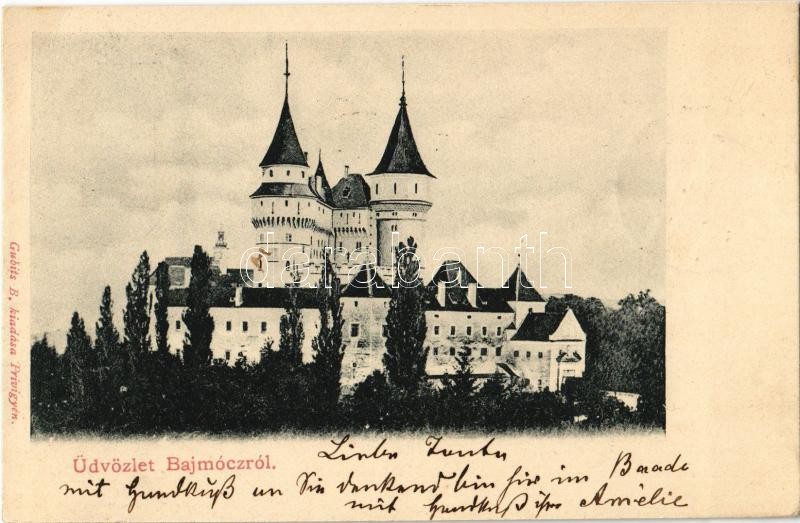 Gubits B. kiadása Privigyén.
darabanth
Üdvözlet Bajmóczról.
Liebe Tante
mit Handkuß an Sie denkend bin hir im Baade
mit Handkuß ihre Amélie